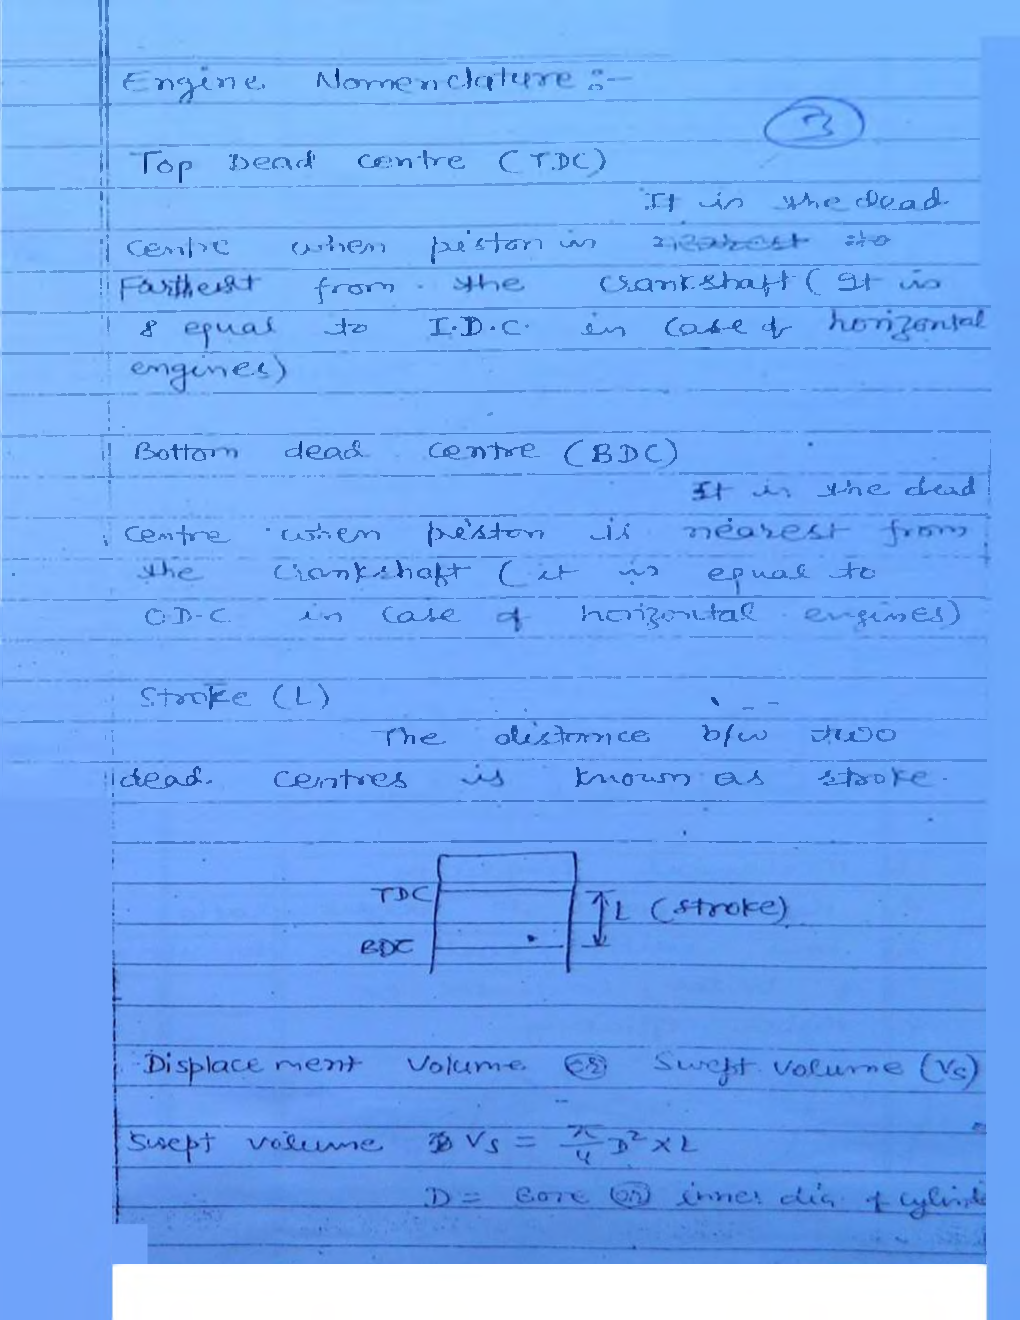 Engine Nomenclature :-
3
Top Dead centre (T.D.C)
It is the dead
centre when piston is nearest to
Farthest from the crankshaft (It is
& equal to I.D.C. in case of horizontal
engines)
Bottom dead centre (BDC)
It is the dead
centre when piston is nearest from
the crankshaft (it is equal to
O.D.C. in case of horizontal engines)
Stroke (L)
The distance b/w two
dead centres is known as stroke.
TDC
L (stroke)
BDC
Displacement Volume or Swept volume (Vs)
Swept volume Vs = π/4 D² x L
D = Bore or inner dia. of cylinde